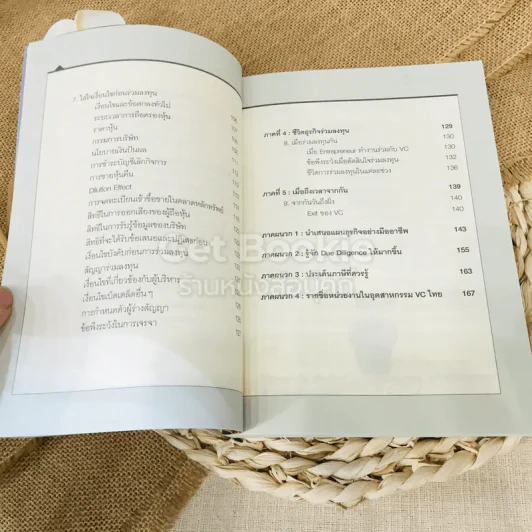 7. ใส่ใจเงื่อนไขก่อนร่วมลงทุน
เงื่อนไขและข้อตกลงทั่วไป
ระยะเวลาการถือครองหุ้น
ราคาหุ้น
กรรมการบริษัท
นโยบายเงินปันผล
การชำระบัญชีเลิกกิจการ
การขายหุ้นคืน
Dilution Effect
การจดทะเบียนเข้าซื้อขายในตลาดหลักทรัพย์
สิทธิในการออกเสียงของผู้ถือหุ้น
สิทธิในการรับรู้ข้อมูลของบริษัท
สิทธิที่จะได้รับข้อเสนอและปฏิเสธก่อน
เงื่อนไขบังคับก่อนการร่วมลงทุน
สัญญาร่วมลงทุน
เงื่อนไขที่เกี่ยวข้องกับผู้บริหาร
เงื่อนไขเบ็ดเตล็ดอื่นๆ
การกำหนดตัวผู้ร่างสัญญา
ข้อพึงระวังในการเจรจา
ภาคที่ 4 : ชีวิตธุรกิจร่วมลงทุน 129
8. เมื่อร่วมลงทุนกัน 130
เมื่อ Entrepreneur ทำงานร่วมกับ VC 130
ข้อพึงระวังเมื่อตัดสินใจร่วมลงทุน 132
ชีวิตการร่วมลงทุนในแต่ละช่วง 136
ภาคที่ 5 : เมื่อถึงเวลาจากกัน 139
9. จากกันวันถึงฝั่ง 140
Exit ของ VC 140
ภาคผนวก 1 : นำเสนอแผนธุรกิจอย่างมืออาชีพ 143
ภาคผนวก 2 : รู้จัก Due Diligence ให้มากขึ้น 155
ภาคผนวก 3 : ประเด็นภาษีที่ควรรู้ 163
ภาคผนวก 4 : รายชื่อหน่วยงานในอุตสาหกรรม VC ไทย 167
Get Bookie
ร้านหนังสือนอกกี่